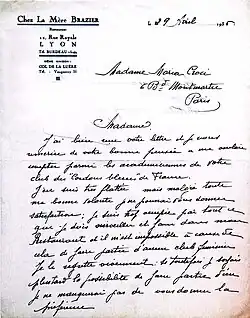 Chez La Mère BRAZIER
Restaurant
12, Rue Royale
LYON
Tél. BURDEAU
même maison :
COL DE LA LUÈRE
Tél. : Vaugneray 51
L 29 Avril 19
Madame Maria Croci
6 Bd Montmartre
Paris
Madame,
J'ai bien reçu votre lettre et je vous
remercie de votre bonne pensée à me vouloir
compter parmi les académiciennes de votre
club des "Cordons bleus" de France.
J'en suis très flattée mais malgré toute
ma bonne volonté je ne pourrais vous donner
satisfaction, je suis trop occupée par tout ce
que je dois surveiller et faire dans mon
Restaurant et il m'est impossible à cause de
cela de faire partie d'aucun club féminin
Je le regrette vivement, si toutefois je
plus tard la possibilité de faire partie d'un
je ne manquerai pas de vous donner la
préférence